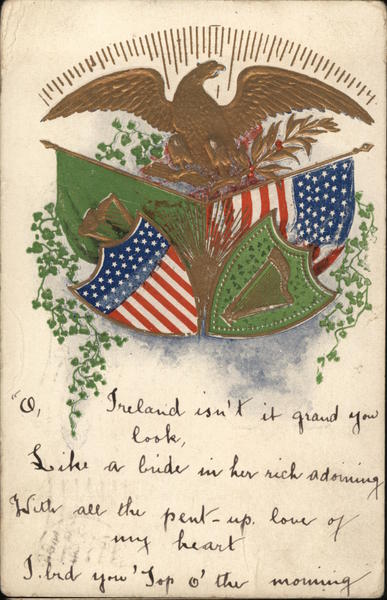 "O, Ireland isn't it grand you
look,
Like a bride in her rich adorning
With all the pent-up love of
my heart
I bid you 'Top O' the morning